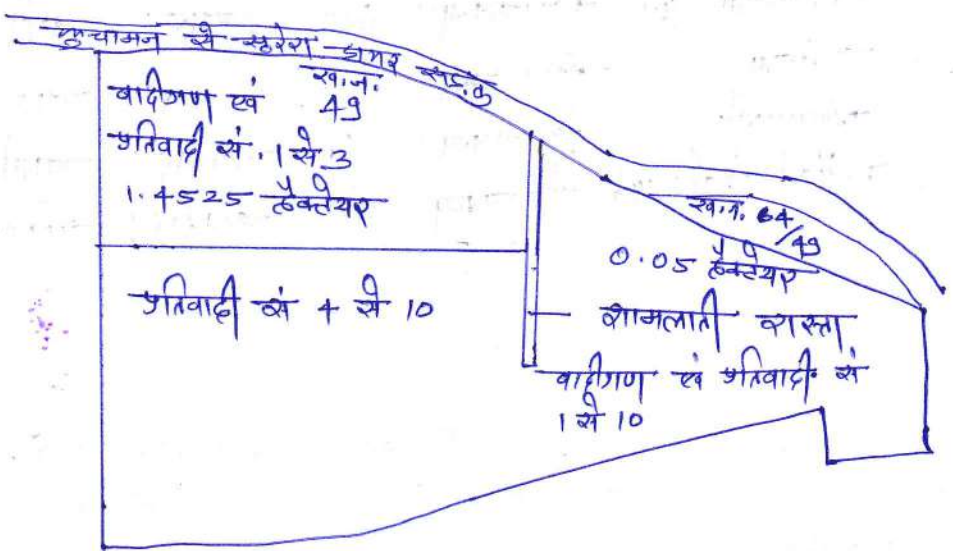 कुचामन से रूरेरा डामर सड़क
ख.न.
वादीगण एवं 49
प्रतिवादी सं. 1 से 3
1.4525 हैक्टेयर
ख.न. 64/49
0.05 हैक्टेयर
प्रतिवादी सं 4 से 10
शामलाती रास्ता
वादीगण एवं प्रतिवादी सं
1 से 10